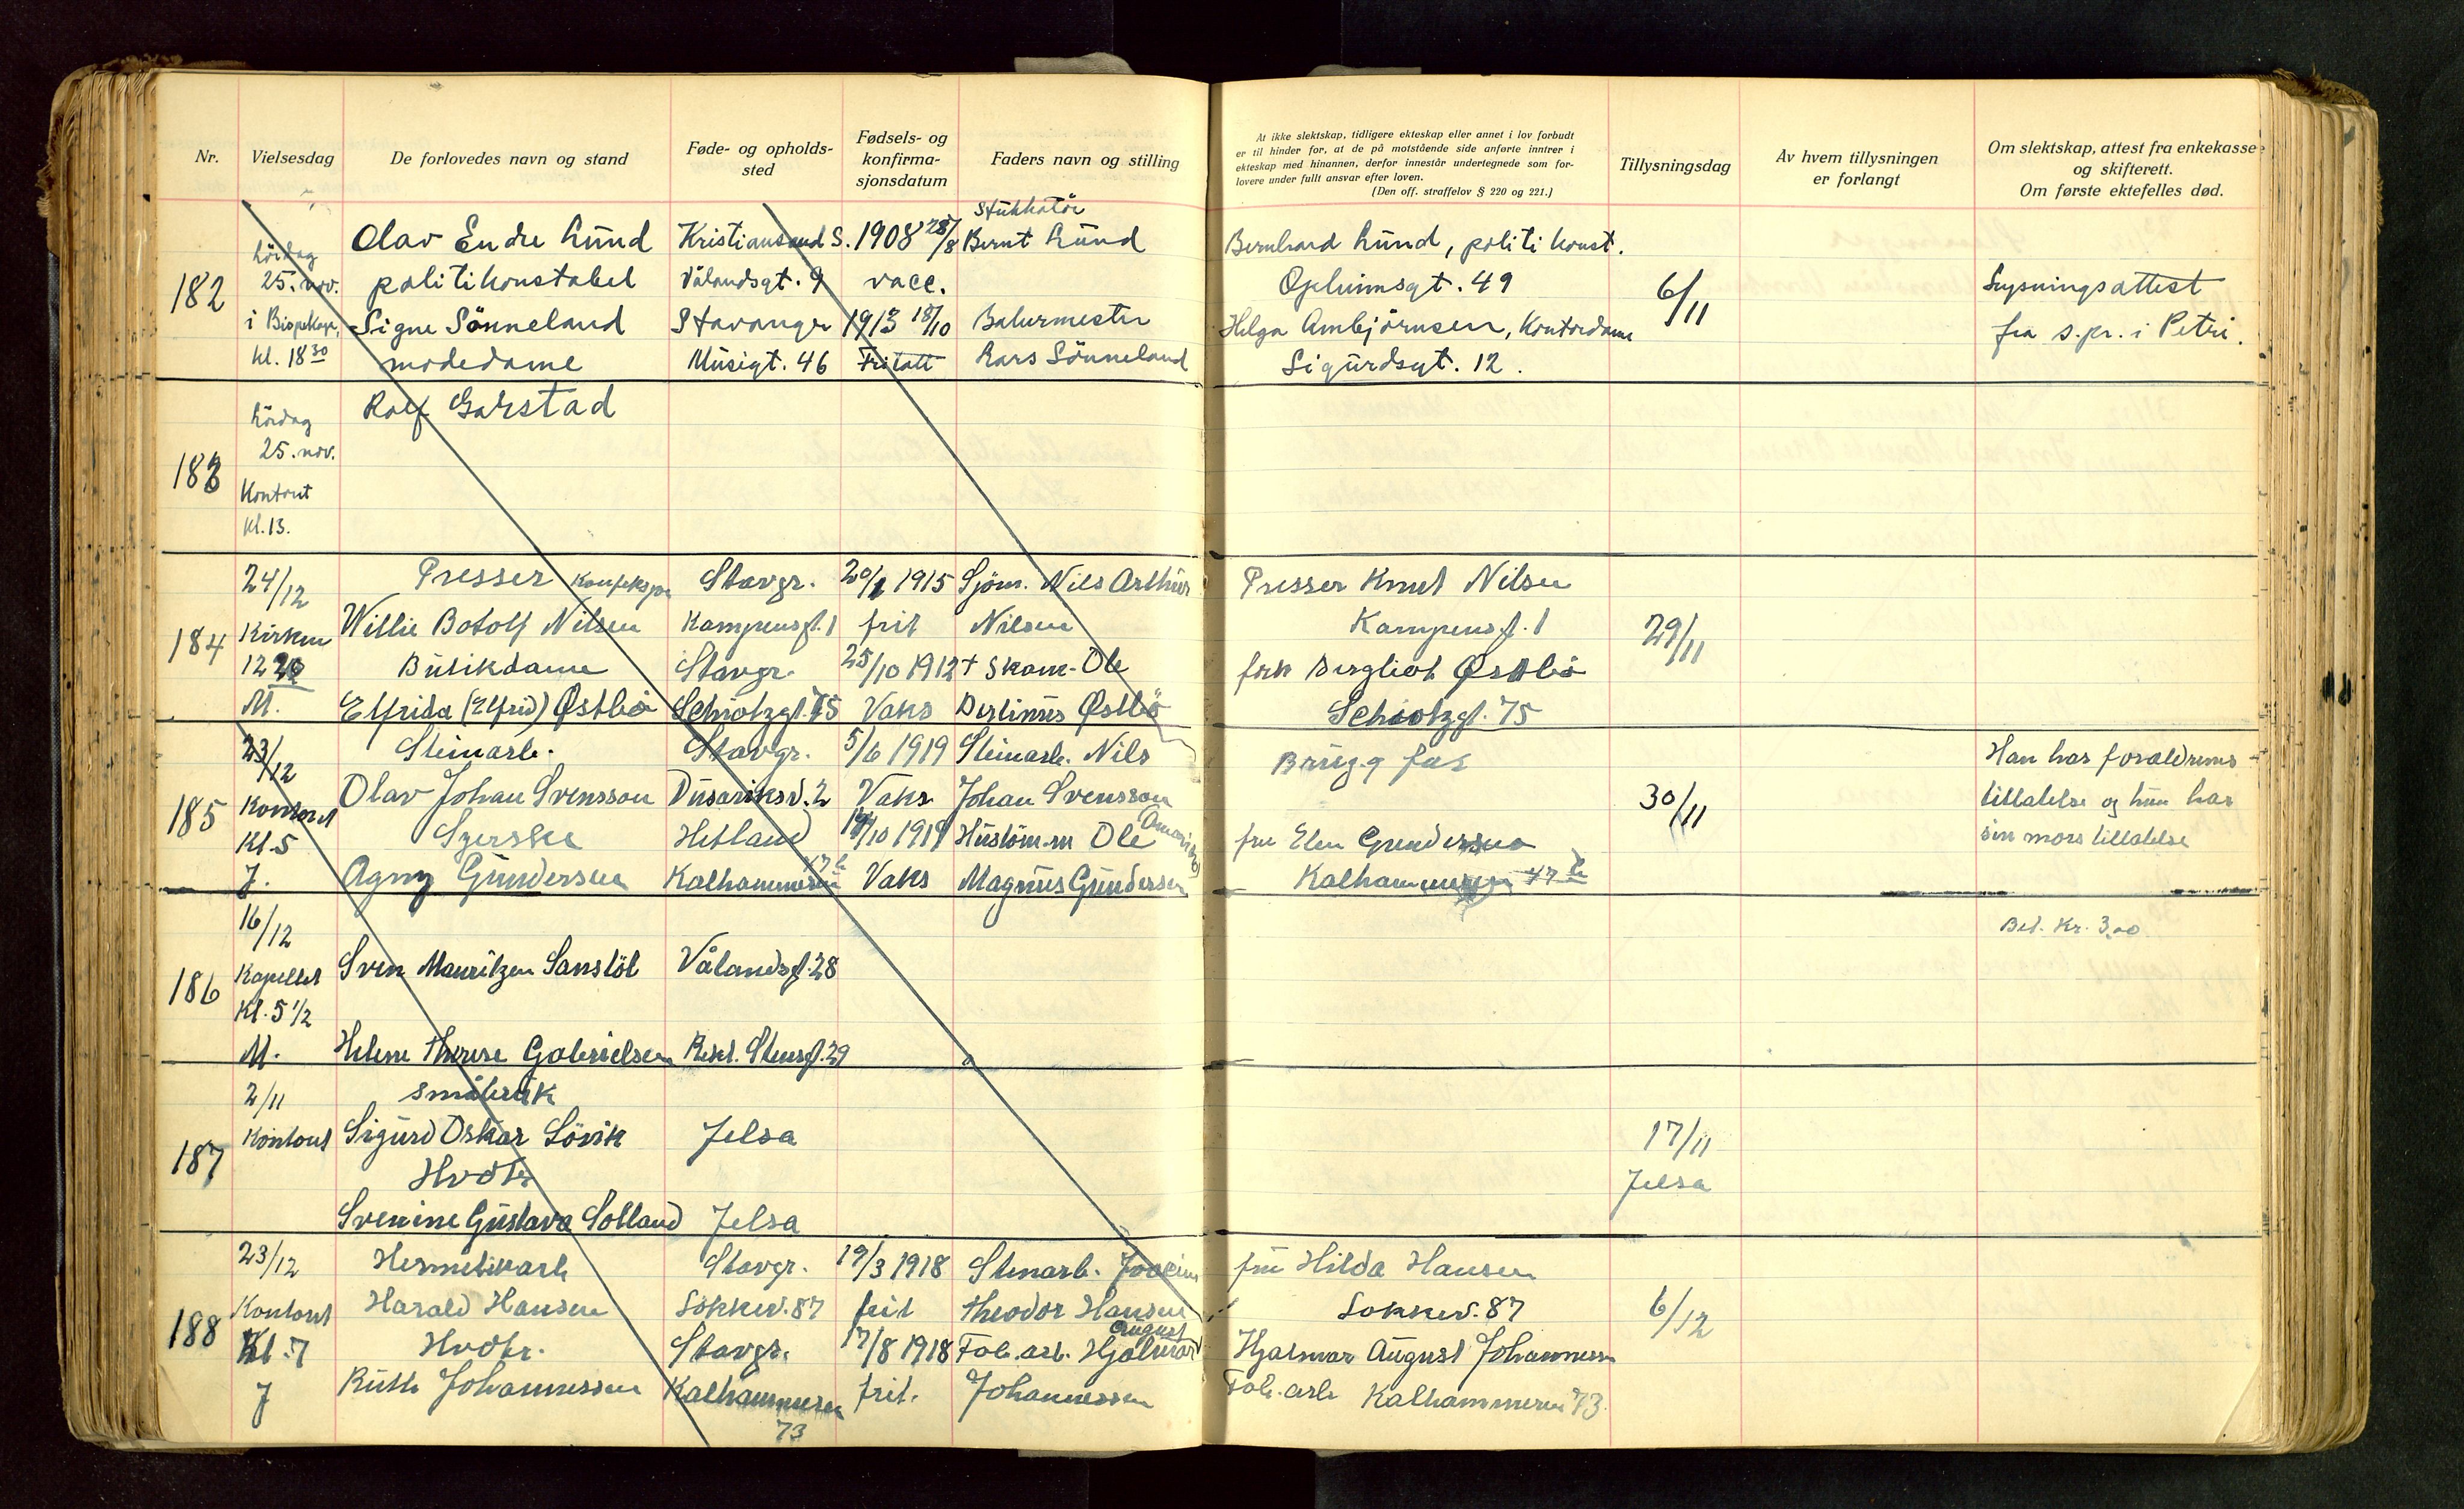 Nr.
Vielsesdag
De forlovedes navn og stand
Føde- og opholds-
sted
Fødsels- og
konfirma-
sjonsdatum
Faders navn og stilling
At ikke slektskap, tidligere ekteskap eller annet i lov forbudt
er til hinder for, at de på motstående side anførte inntrer i
ekteskap med hinannen, derfor innestår undertegnede som for-
lovere under fullt ansvar efter loven.
(Den off. straffelov § 220 og 221.)
Tillysningsdag
Av hvem tillysningen
er forlangt
Om slektskap, attest fra enkekasse
og skifterett.
Om første ektefelles død.
182
Lördag
25. nov.
i Bispekap.
kl. 18 30
Olav Endre Lund
politikonstabel
Signe Sönneland
modedame
Kristiansand S.
Vålandsgt. 9
Stavanger
Musegt. 46
1908 28/8
vacc.
1913 18/10
Fritatt
Stukkatör
Bernt Lund
Bakermester
Lars Sönneland
Bernhard Lund, politikonst.
Opheimsgt. 49
Helga Ambjörnsen, Kontordame
Sigurdsgt. 12.
6/11
Lysningsattest
fra s.pr. i Petri.
183
Lördag
25. nov.
Kontoret
kl. 13.
Rolf Garstad
184
24/12
Kirken
12
M.
Presser
Willie Botolf Nilsen
Butikdame
Elfrida (Elfrid) Østbö
Stavgr.
Kampensgt. 1
Stavgr.
Schiøtzgt. 75
1915
frit
25/10 1912
Vaks
Sjöm. Nils Arthur
Nilsen
+ Skom. Ole
Bertinius Østbö
Presser Knut Nilsen
Kampensgt. 1
frk Bergliot Østbö
Schiøtzgt. 75
29/11
185
23/12
Kontoret
Kl. 5
J.
Steinarb.
Olav Johan Svensson
Syerske
Agny Gundersen
Stavgr.
Dusaviksv. 2
Hetland
Kalhammeren 47 b
5/6 1919
Vaks
10 1919
Vaks
Steinarb. Nils
Johan Svensson
Ole
Magnus Gundersen
Brugg
fru Elen Gundersen
Kalhammeren 47 b
30/11
Han har foreldrenes
tillatelse og hun har
sin mors tillatelse
186
16/12
Kapellet
Kl. 5 1/2
M.
Sven Mauritzen Sanstöl
Helene Therese Gabrielsen
Vålandsgt. 28
29
Bet. Kr. 3,00
187
2/11
Kontoret
småbruk
Sigurd Oskar Lövik
Hvdtr
Svenine Gustava Solland
Jelsa
Jelsa
17/11
Jelsa
188
23/12
Kontoret
Kl. 7
J
Hermetikkarb
Harald Hansen
Hvdtr.
Ruth Johannessen
Stavgr.
Lokkev. 87
Stavgr.
Kalhammeren
73
19/3 1918
frit
17/8 1918
frit.
Stenarb. Joacim
Theodor Hansen
August
Fab. arb. Hjalmar
Johannessen
fru Hilda Hansen
Lokkev. 87
Hjalmar August Johannessen
Fab. arb Kalhammeren 73.
6/12